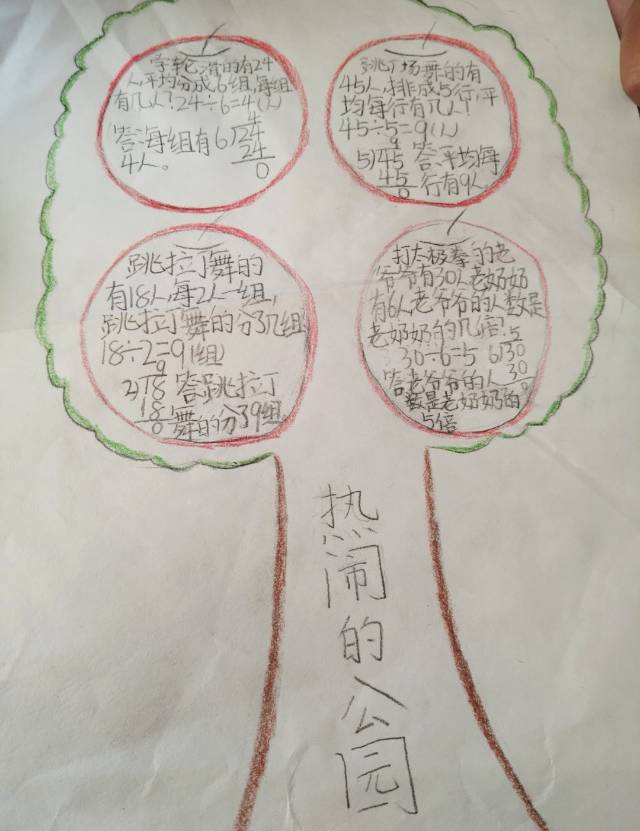 学轮滑的有24
人,平均分成6组,每组
有几人?24÷6=4(人)
4
答:每组有 6)24
4人。 24
0
跳广场舞的有
45人,排成5行,平
均每行有几人?
45÷5=9(人)
9
5)45 答:平均每
45 行有9人。
0
跳拉丁舞的
有18人,每2人一组,
跳拉丁舞的分了几组?
18÷2=9(组)
9
2)18 答:跳拉丁
18 舞的分了9组。
0
打太极拳的老
爷爷有30人,老奶奶
有6人,老爷爷的人数是
老奶奶的几倍?
5
30÷6=5 6)30
30
答:老爷爷的人 0
数是老奶奶的
5倍
热闹的公园